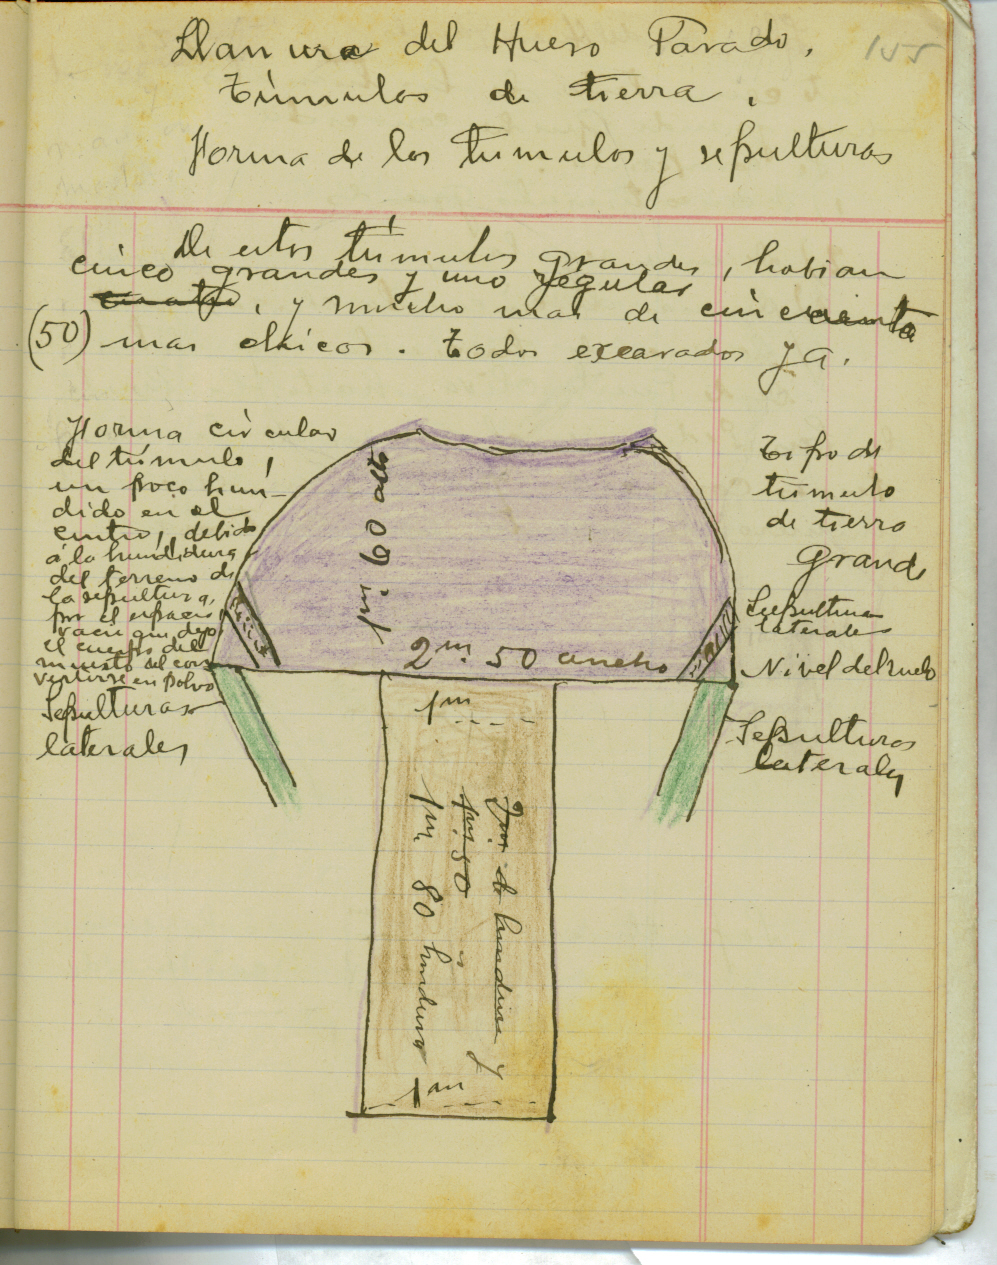 155
Llanura del Hueso Parado.
Túmulos de tierra.
Forma de los túmulos y sepulturas
De estos túmulos grandes, habian
cinco grandes y uno regular
cuatro, y mucho mas de cincuenta
(50) mas chicos. Todos excavados ya.
Forma circular
del túmulo,
un poco hun-
dido en el
centro, debido
á la hundidura
del terreno de
la sepultura,
por el espacio
vacio que dejo
el cuerpo del
muerto al con
vertirse en polvo
Sepulturas
laterales
Tipo de
túmulo
de tierra
Grande
Sepulturas
laterales
Nivel del suelo
Sepulturas
laterales
1m 60 alto
2m. 50 ancho
1m
2m. de hundura y
1m. 50
1m. 80 hundura
1m